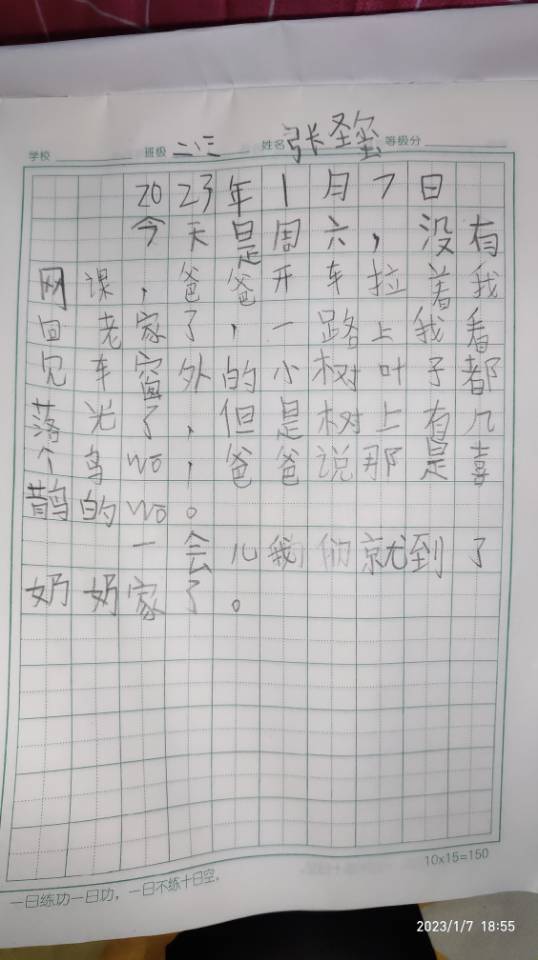 学校 班级 二三 姓名 张圣 等级分
2023年1月7日
今天是周六，没有
网课，爸爸开车拉着我
回老家了，一路上我看
见车窗外的小树叶子都
落光了，但是树上有几
个鸟wō，爸爸说那是喜
鹊的wō。
一会儿我们就到了
奶奶家了。
10x15=150
一日练功一日功，一日不练十日空。
2023/1/7 18:55